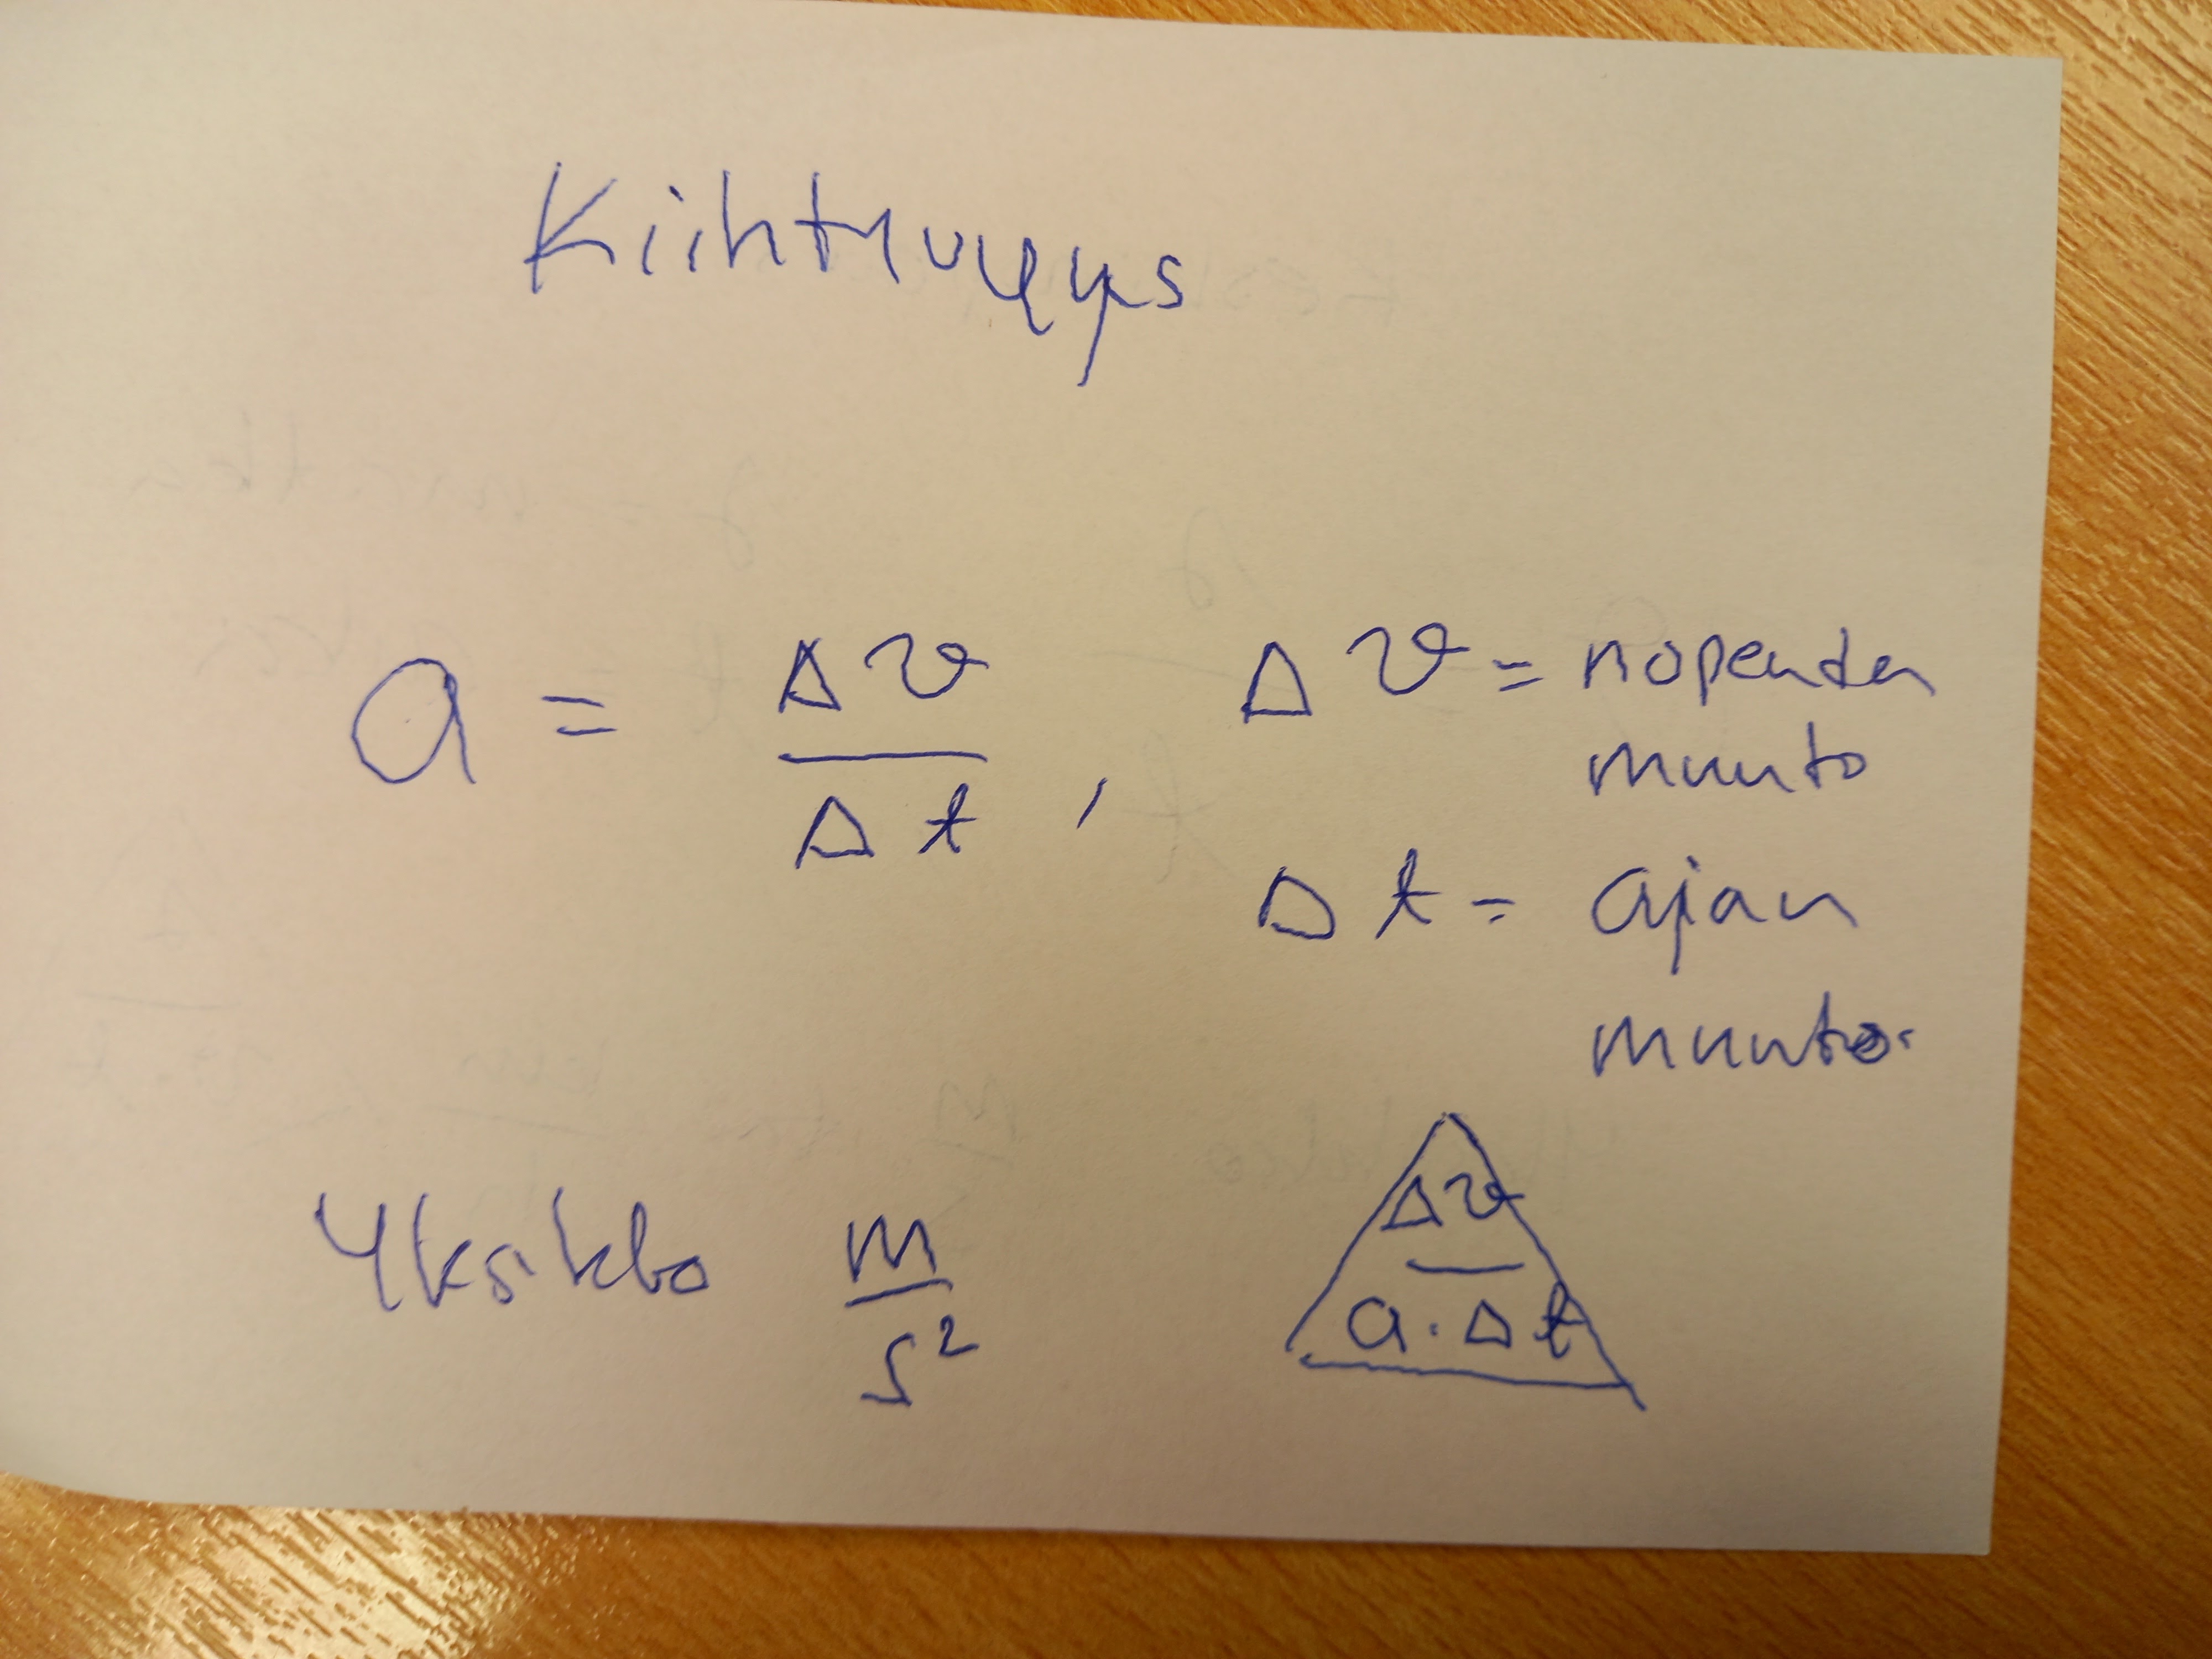 Kiihtyvyys
a = Δv / Δt , Δv = nopeuden
muuto
Δt = ajan
muutos
Yksikkö m / s²
Δv
a · Δt